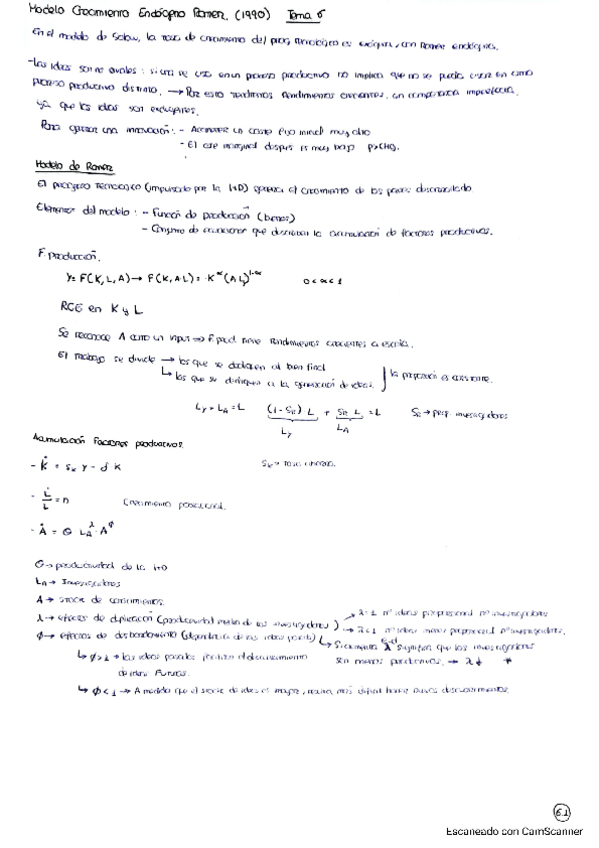 Modelo Crecimiento Endógeno Romer. (1990) Tema 6
En el modelo de Solow, la tasa de crecimiento del prog. tecnológico es exógena, con Romer endógena.
- Las ideas son no rivales: si una se usa en un proceso productivo no implica que no se pueda usar en otro
proceso productivo distinto. → Por esto tendremos rendimientos crecientes, en competencia imperfecta,
ya que las ideas son excluyentes.
Para generar una innovación: - Acometer un coste fijo inicial muy alto
- El coste marginal después es muy bajo
Modelo de Romer
El progreso tecnológico (impulsado por la I+D) genera el crecimiento de los países desarrollados
Elementos del modelo: - Función de producción (bienes)
- Conjunto de ecuaciones que describen la acumulación de factores productivos.
F. producción.
Y = F(K, L, A) → F(K, A·L) = K^α (AL)^1-α 0 < α < 1
RCE en K y L
Se reconoce A como un input => F. prod. tiene rendimientos crecientes a escala.
El trabajo se divide → los que se dedican al bien final
↳ los que se dedican a la generación de ideas } la proporción es constante.
L_Y + L_A = L (1 - S_R)·L + S_R·L = L S_R → prop. investigadores
L_Y L_A
Acumulación Factores productivos.
- K̇ = s_K Y - d K S_K → tasa ahorro.
- L̇/L = n Crecimiento poblacional.
- Ȧ = θ L_A^λ · A^φ
θ → productividad de la I+D
L_A → Investigadores
A → stock de conocimientos.
λ → efectos de duplicación (productividad media de los investigadores) → λ = 1 nº ideas proporcional nº investigadores
→ λ < 1 nº ideas menos proporcional nº investigadores.
φ → efectos de desbordamiento (dependencia de las ideas pasadas) ↳ Si aumenta λ significa que los investigadores
son menos productivos. → λ↓
↳ φ > 1 → las ideas pasadas facilitan el descubrimiento
de ideas futuras.
↳ φ < 1 → A medida que el stock de ideas es mayor, resulta más difícil hacer nuevos descubrimientos.
6.1
Escaneado con CamScanner